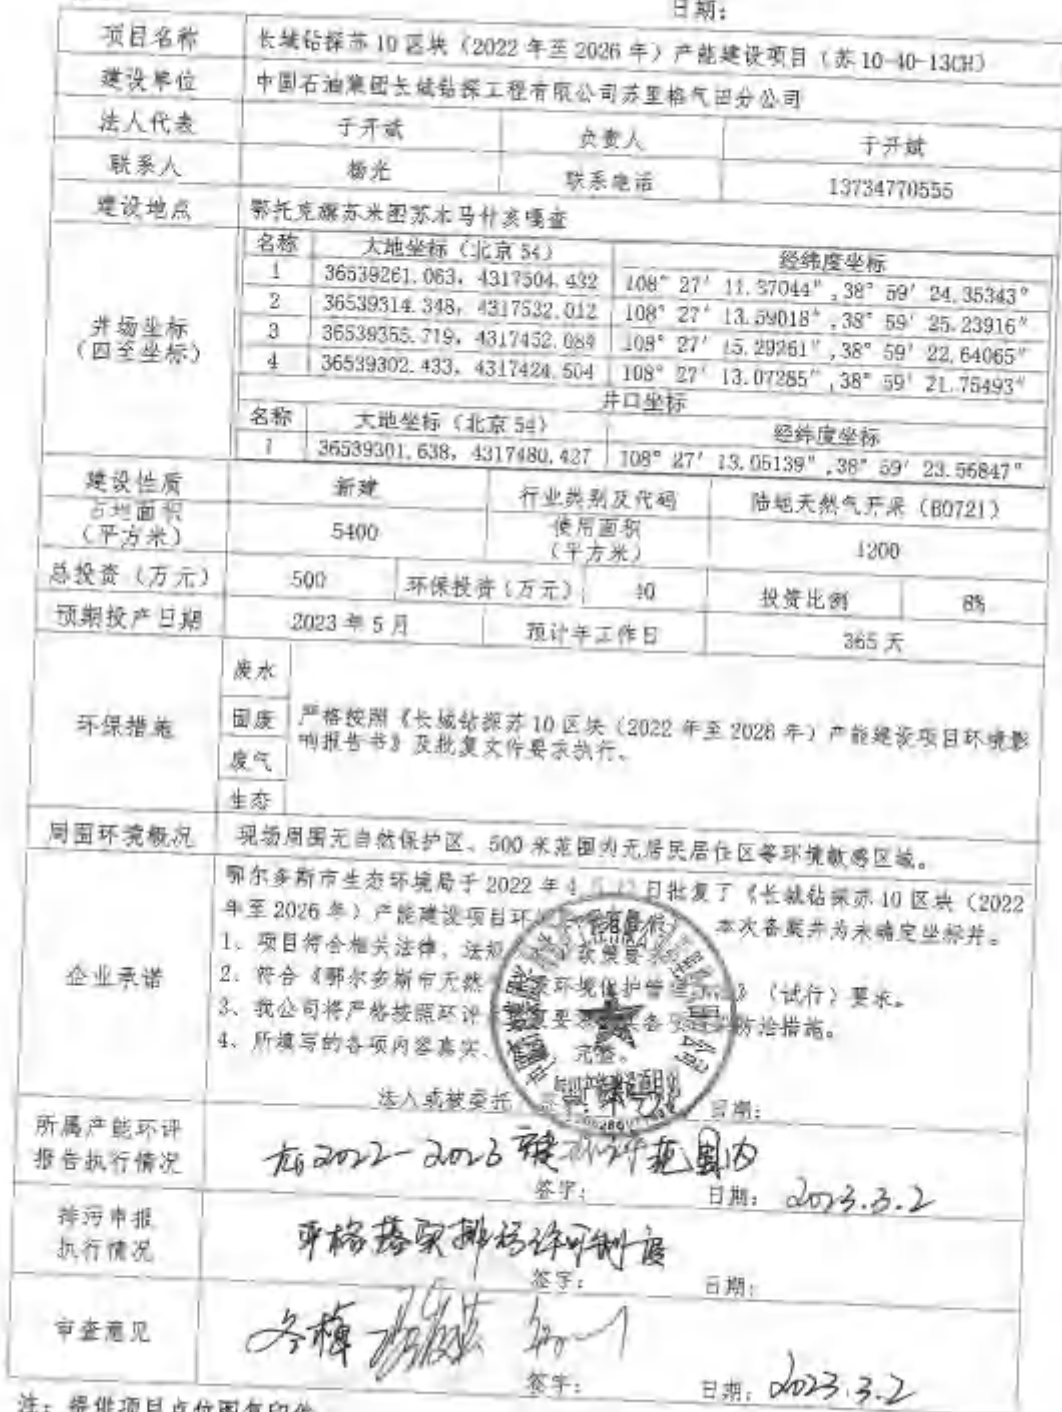 日期：
项目名称 长城钻探苏10区块（2022年至2026年）产能建设项目（苏10-40-13CH）
建设单位 中国石油集团长城钻探工程有限公司苏里格气田分公司
法人代表 于开斌 负责人 于开斌
联系人 杨光 联系电话 13734770555
建设地点 鄂托克旗苏米图苏木马什亥嘎查
井场坐标
（四至坐标）
名称 大地坐标（北京54） 经纬度坐标
1 36539261.063，4317504.432 108°27′11.37044″,38°59′24.35343″
2 36539314.348，4317532.012 108°27′13.59018″,38°59′25.23916″
3 36539355.719，4317452.084 108°27′15.29261″,38°59′22.64065″
4 36539302.433，4317424.504 108°27′13.07285″,38°59′21.75493″
井口坐标
名称 大地坐标（北京54） 经纬度坐标
1 36539301.638，4317480.427 108°27′13.05139″,38°59′23.56847″
建设性质 新建 行业类别及代码 陆地天然气开采（B0721）
占地面积
（平方米） 5400 使用面积
（平方米） 1200
总投资（万元） 500 环保投资（万元） 40 投资比例 8%
预期投产日期 2023年5月 预计年工作日 365天
环保措施
废水
固废
废气
生态
严格按照《长城钻探苏10区块（2022年至2026年）产能建设项目环境影
响报告书》及批复文件要求执行。
周围环境概况 现场周围无自然保护区、500米范围内无居民居住区等环境敏感区域。
企业承诺
鄂尔多斯市生态环境局于2022年4 日批复了《长城钻探苏10区块（2022
年至2026年）产能建设项目环 本次备案井为未确定坐标井。
1、项目符合相关法律、法规 政策要求
2、符合《鄂尔多斯市天然 环境保护管理 》（试行）要求。
3、我公司将严格按照环评 要求 各项 防治措施。
4、所填写的各项内容真实、 完整。
法人或被委托 日期：
所属产能环评
报告执行情况
在2022-2023 环评范围内
签字： 日期：2023.3.2
排污申报
执行情况
严格落实排污许可制度
签字： 日期：
审查意见
签字： 日期：2023.3.2
注：提供项目点位图复印件